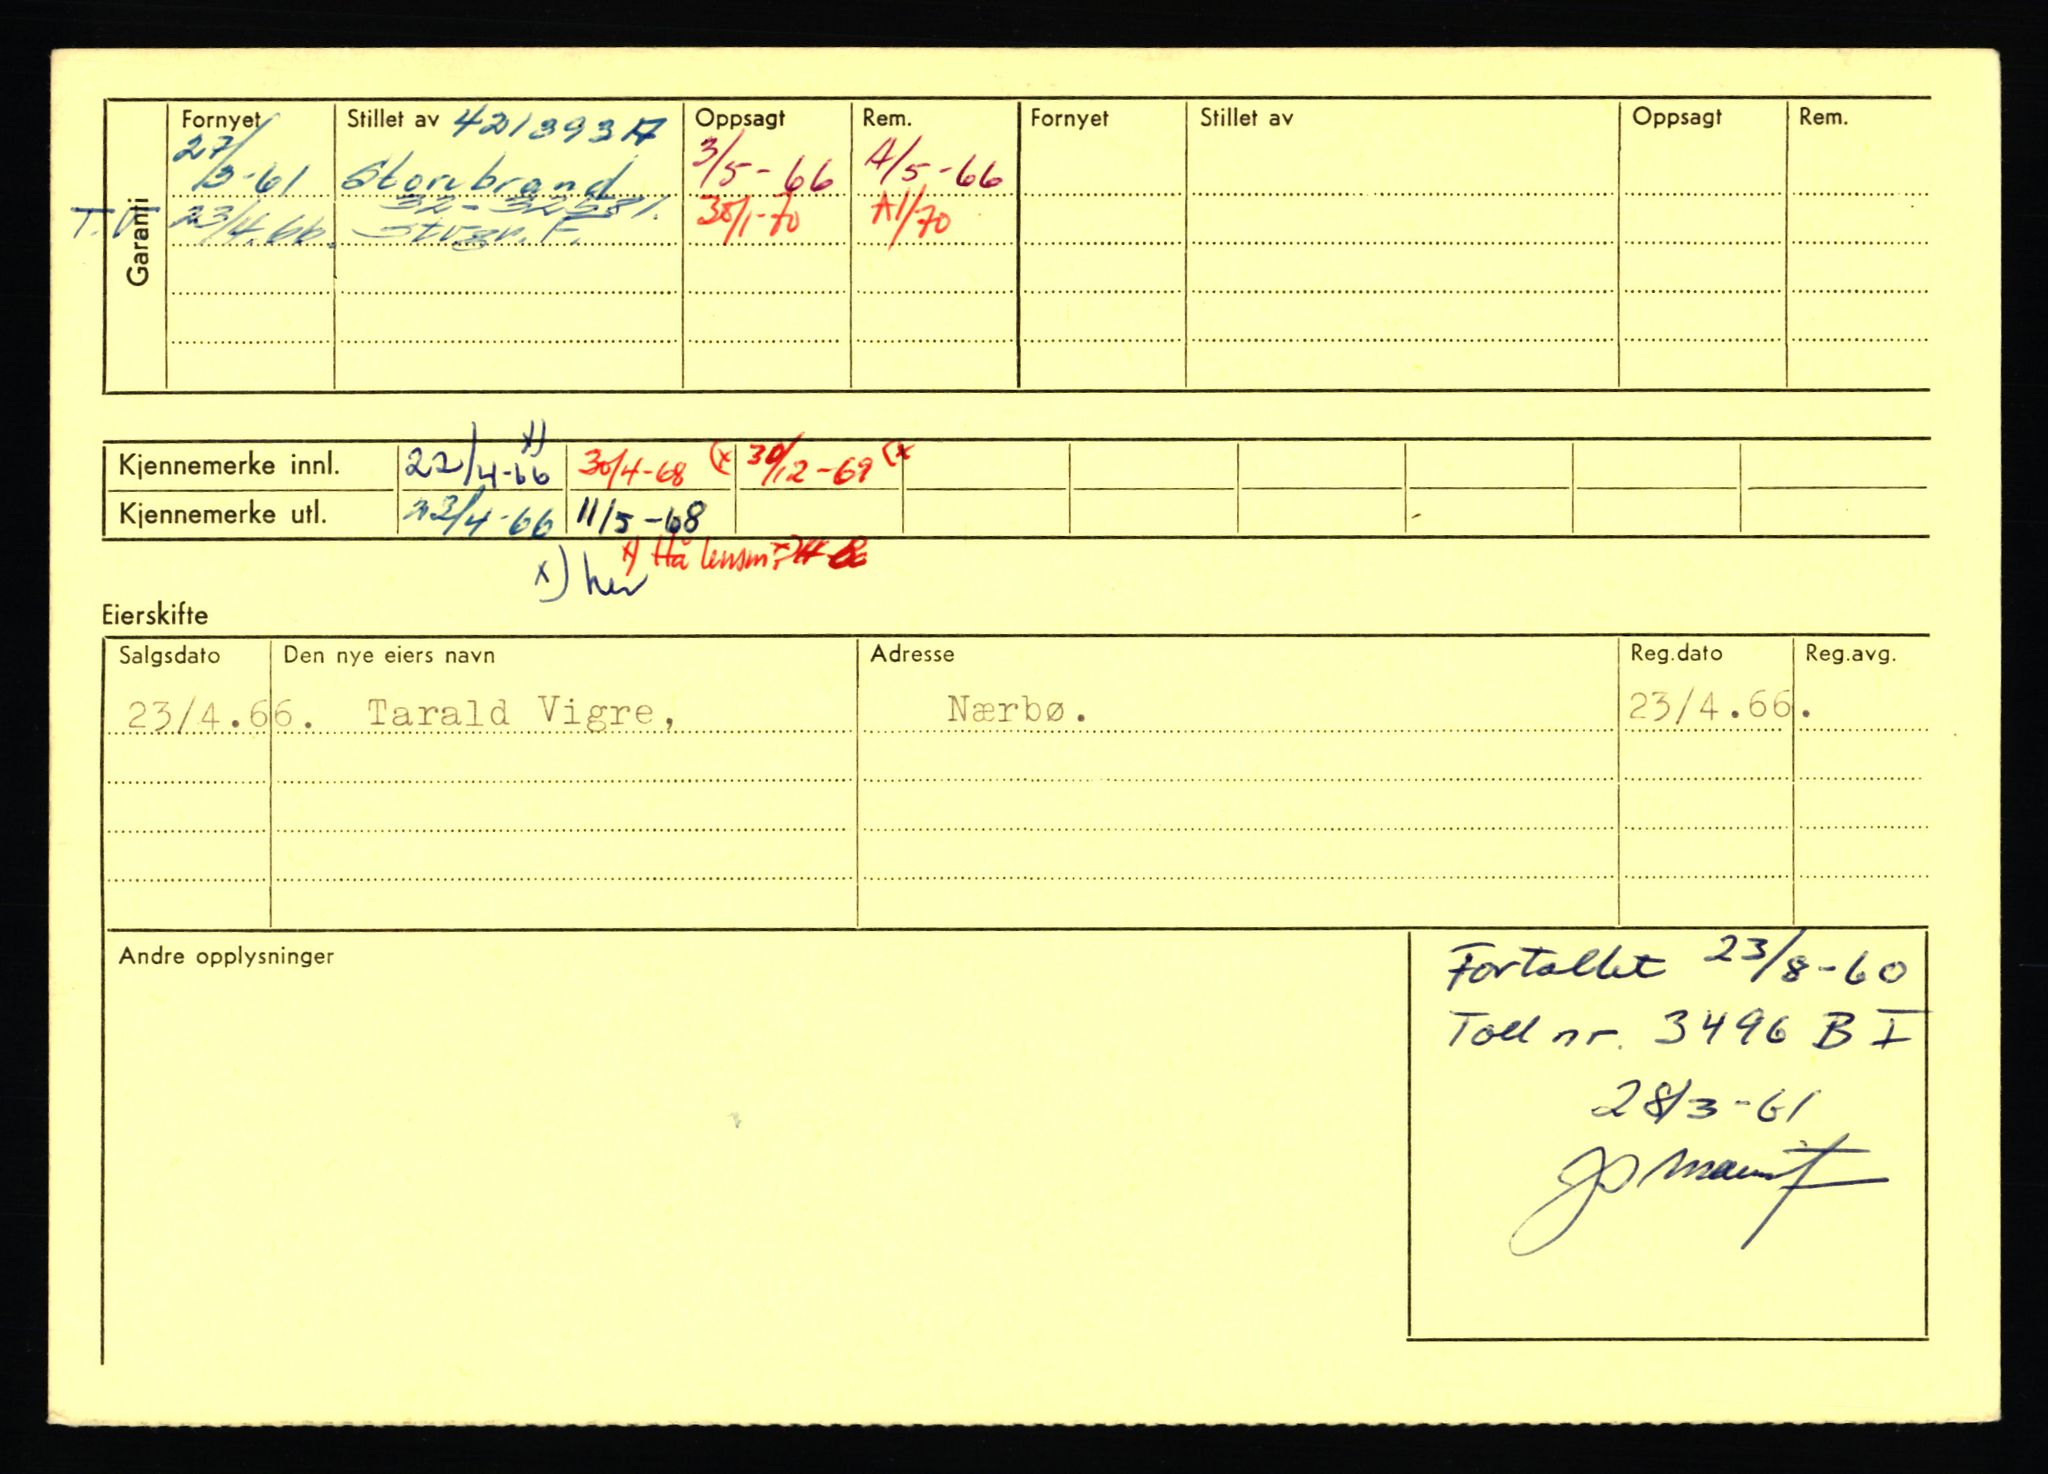 Garanti
Fornyet Stillet av 421393 A Oppsagt Rem. Fornyet Stillet av Oppsagt Rem.
27/
/3-61 Storebrand 3/5-66 A/5-66
T.V. 23/4.66. 32-32581. 30/1-70 A1/70
Kjennemerke innl. 22/4-66 x) 30/4-68 (x 30/12-69 (x
Kjennemerke utl. 23/4-66 11/5-68
x) Hå lensm.
x) her
Eierskifte
Salgsdato Den nye eiers navn Adresse Reg.dato Reg.avg.
23/4.66. Tarald Vigre, Nærbø. 23/4.66.
Andre opplysninger
Fortollet 23/8-60
Toll nr. 3496 B I
28/3-61